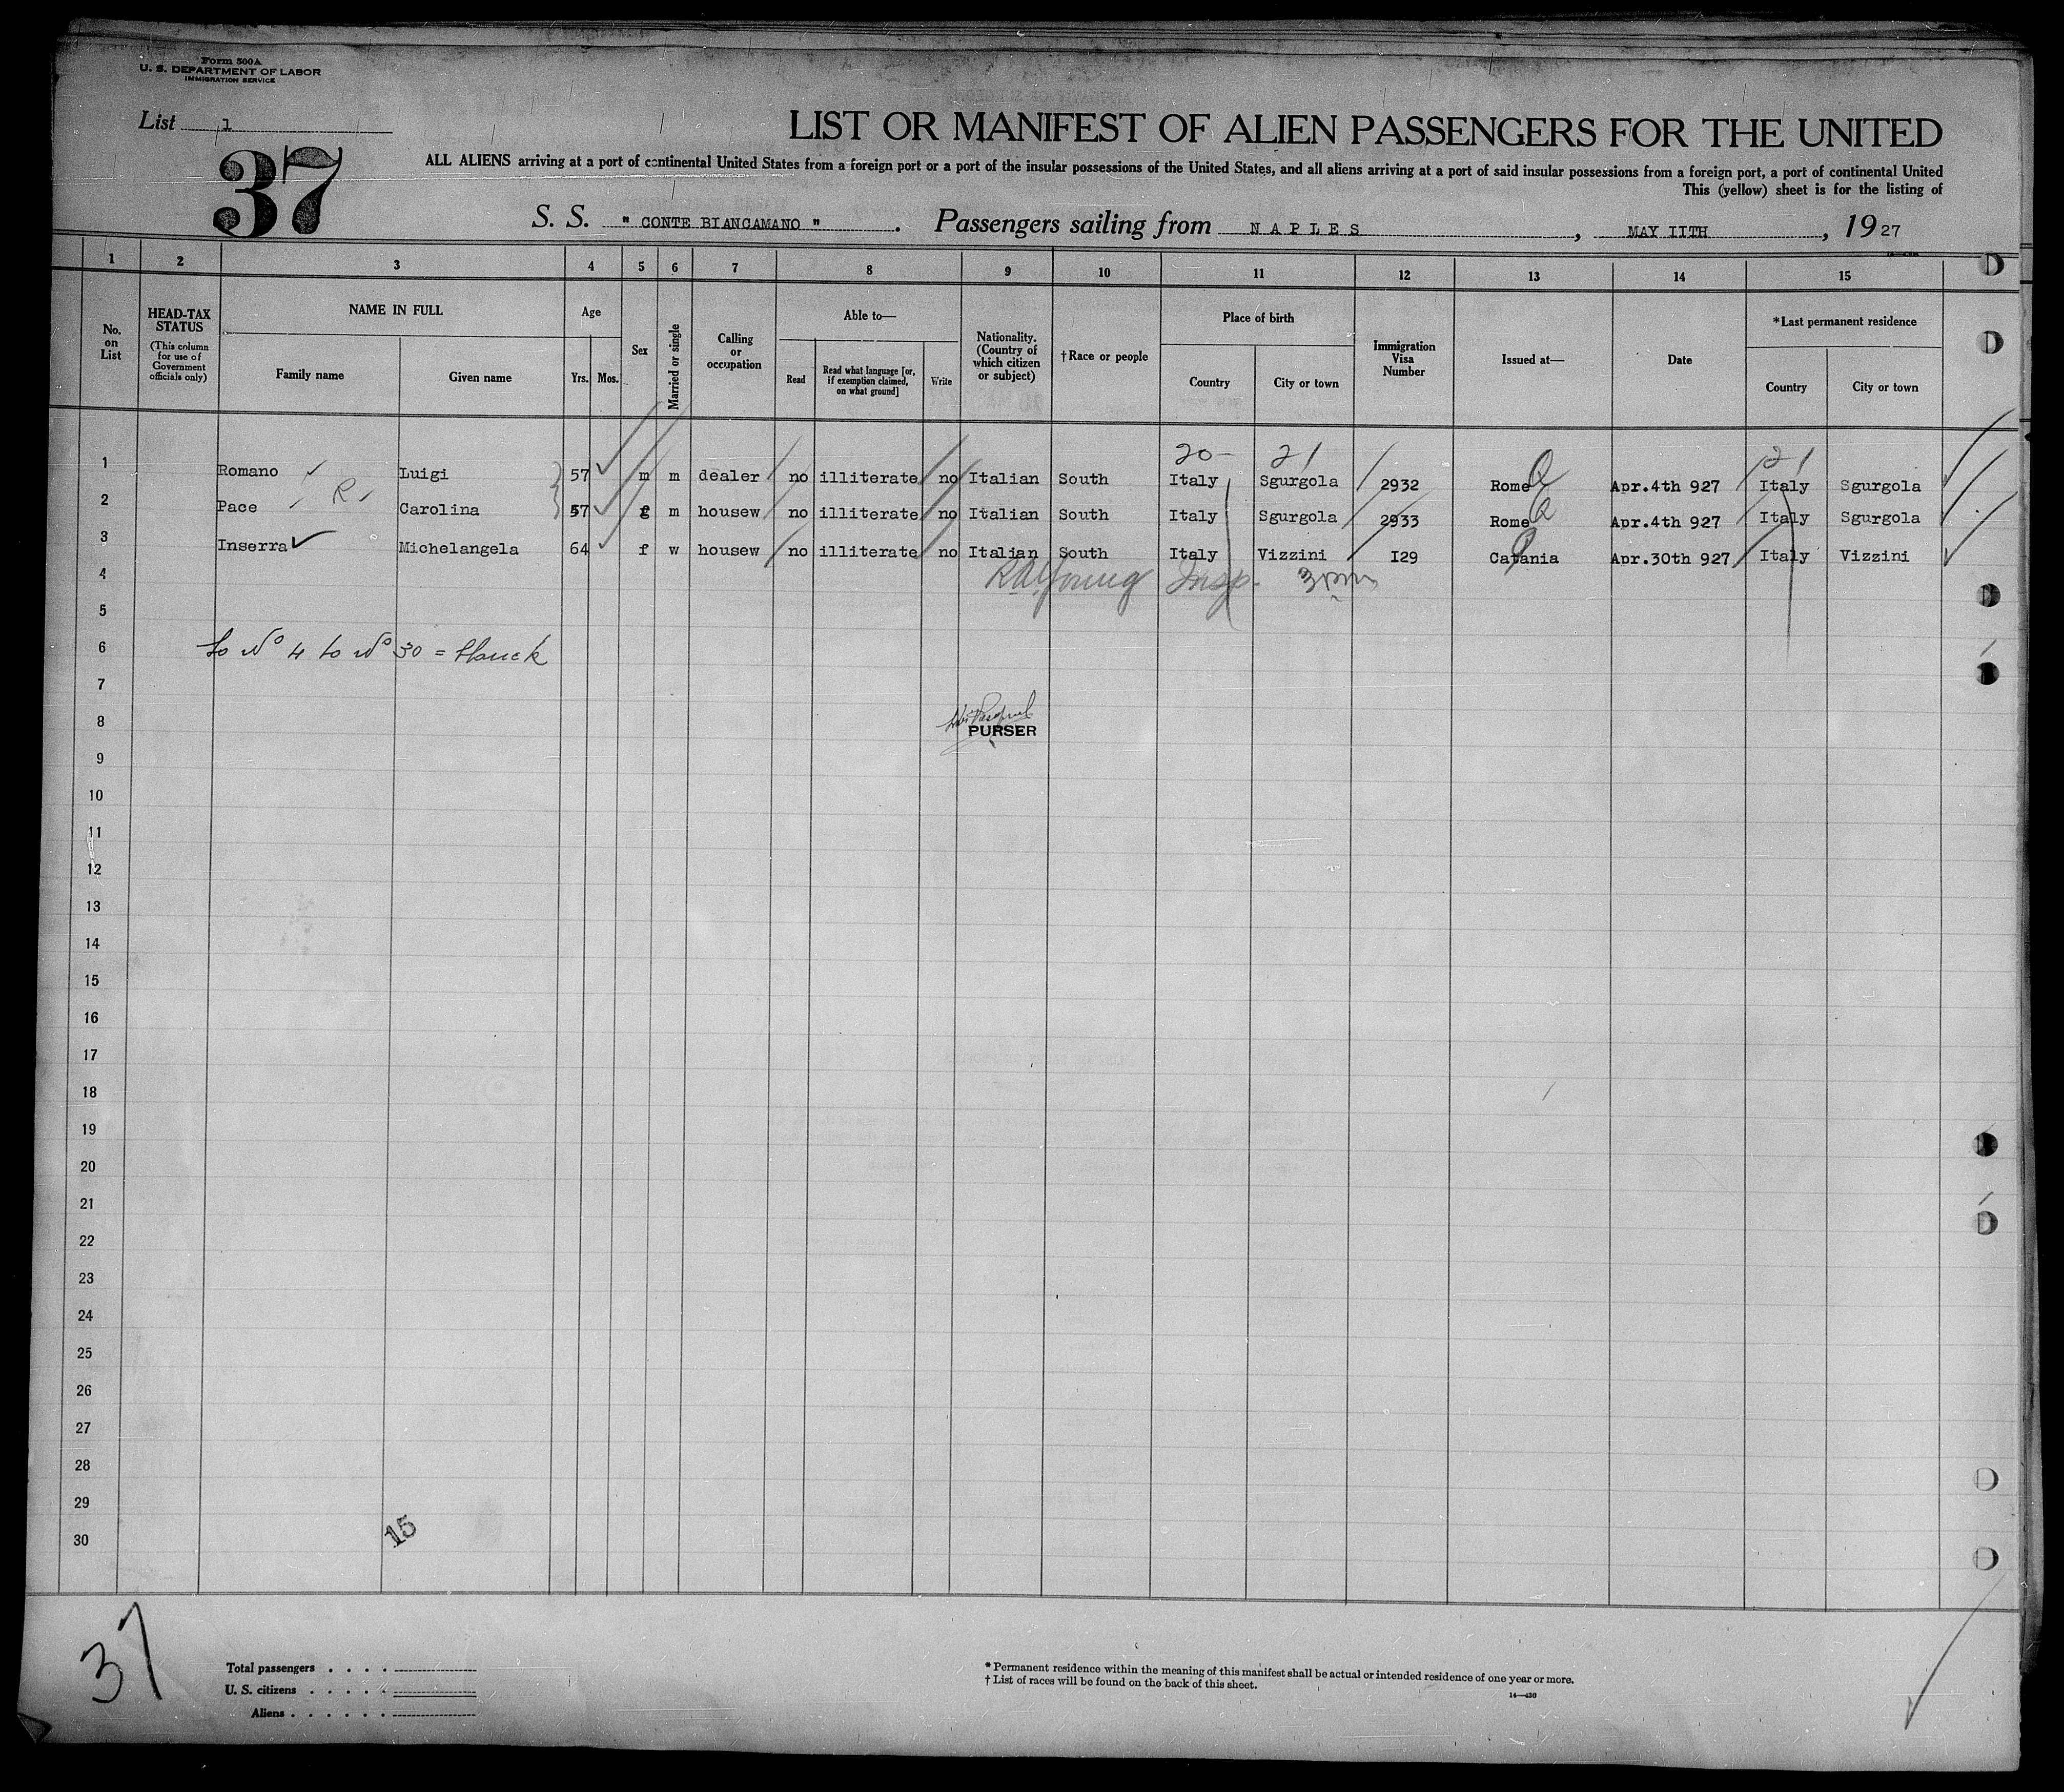 Form 500A
U. S. DEPARTMENT OF LABOR
IMMIGRATION SERVICE
List 1
37
LIST OR MANIFEST OF ALIEN PASSENGERS FOR THE UNITED
ALL ALIENS arriving at a port of continental United States from a foreign port or a port of the insular possessions of the United States, and all aliens arriving at a port of said insular possessions from a foreign port, a port of continental United
This (yellow) sheet is for the listing of
S. S. " CONTE BIANCAMANO ". Passengers sailing from NAPLES, MAY IITH, 1927
1 2 3 4 5 6 7 8 9 10 11 12 13 14 15
No. on List
HEAD-TAX STATUS
(This column for use of Government officials only)
NAME IN FULL
Family name Given name
Age
Yrs. Mos.
Sex
Married or single
Calling or occupation
Able to—
Read
Read what language [or, if exemption claimed, on what ground]
Write
Nationality. (Country of which citizen or subject)
†Race or people
Place of birth
Country City or town
Immigration Visa Number
Issued at—
Date
*Last permanent residence
Country City or town
20- 21 21
1 Romano Luigi 57 m m dealer no illiterate no Italian South Italy Sgurgola 2932 Rome Apr.4th 927 Italy Sgurgola
R
2 Pace Carolina 57 f m housew no illiterate no Italian South Italy Sgurgola 2933 Rome Apr.4th 927 Italy Sgurgola
3 Inserra Michelangela 64 f w housew no illiterate no Italian South Italy Vizzini I29 Catania Apr.30th 927 Italy Vizzini
4 Young Insp. 3pm
5
6 to No 4 to No 30 =
7
8 PURSER
9
10
11
12
13
14
15
16
17
18
19
20
21
22
23
24
25
26
27
28
29
30
15
37
Total passengers . . . .
U. S. citizens . . . . .
Aliens . . . . . .
* Permanent residence within the meaning of this manifest shall be actual or intended residence of one year or more.
† List of races will be found on the back of this sheet.
14—430